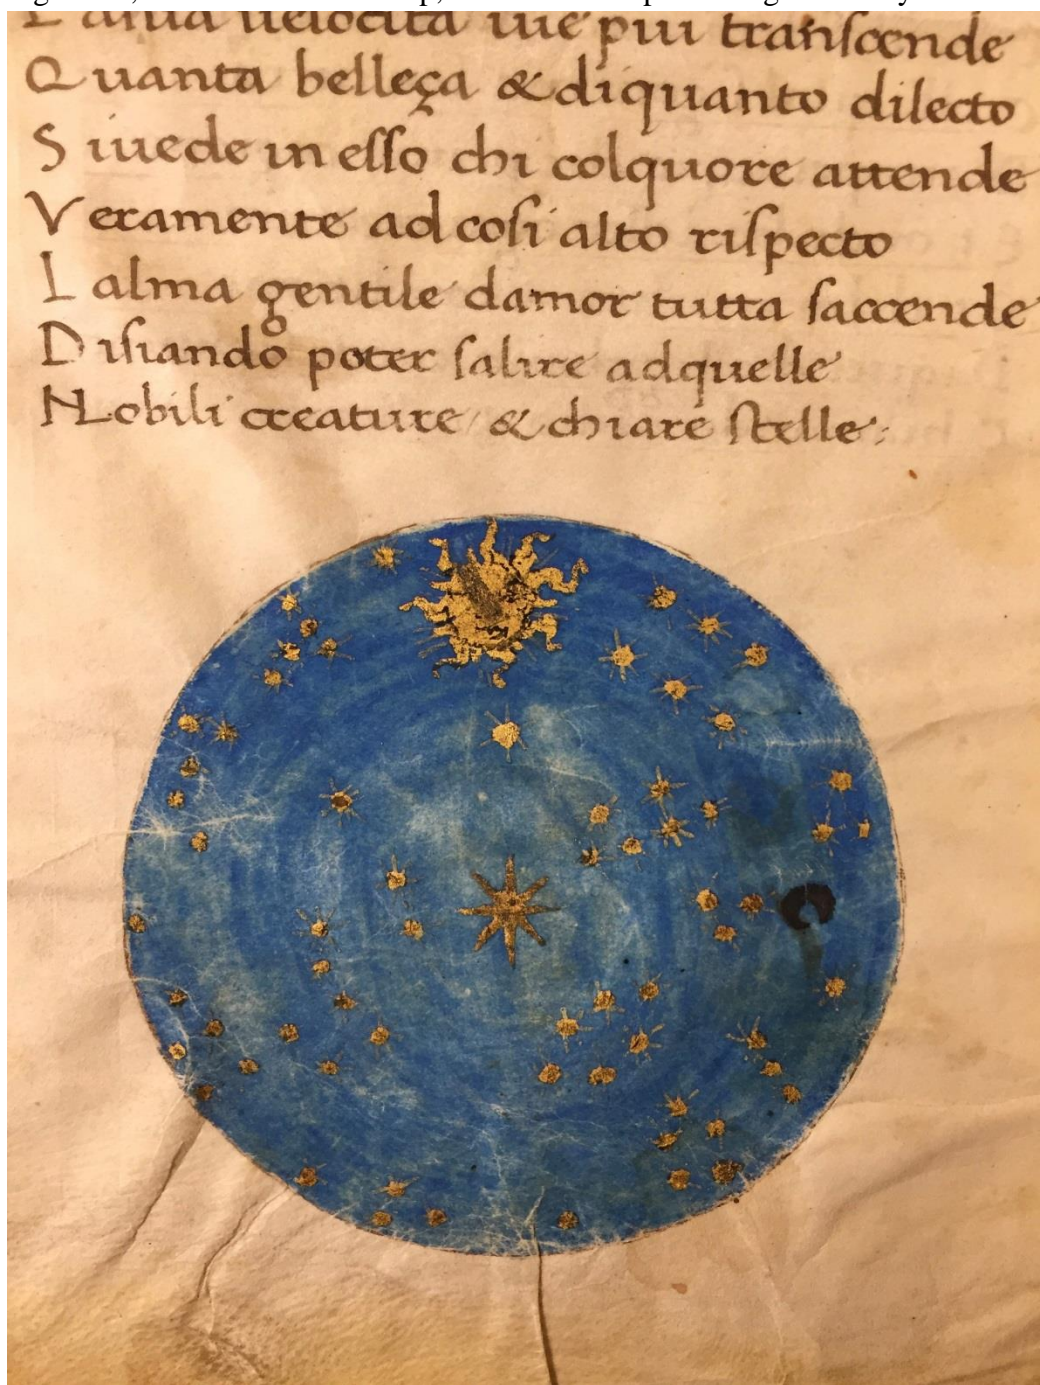 velocita piu transcende
Quanta belleça & diquanto dilecto
Siuede in esso chi colquore attende
Veramente ad cosi alto rispecto
Lalma gentile damor tutta saccende
Disiando poter salire adquelle
Nobili creature & chiare stelle: